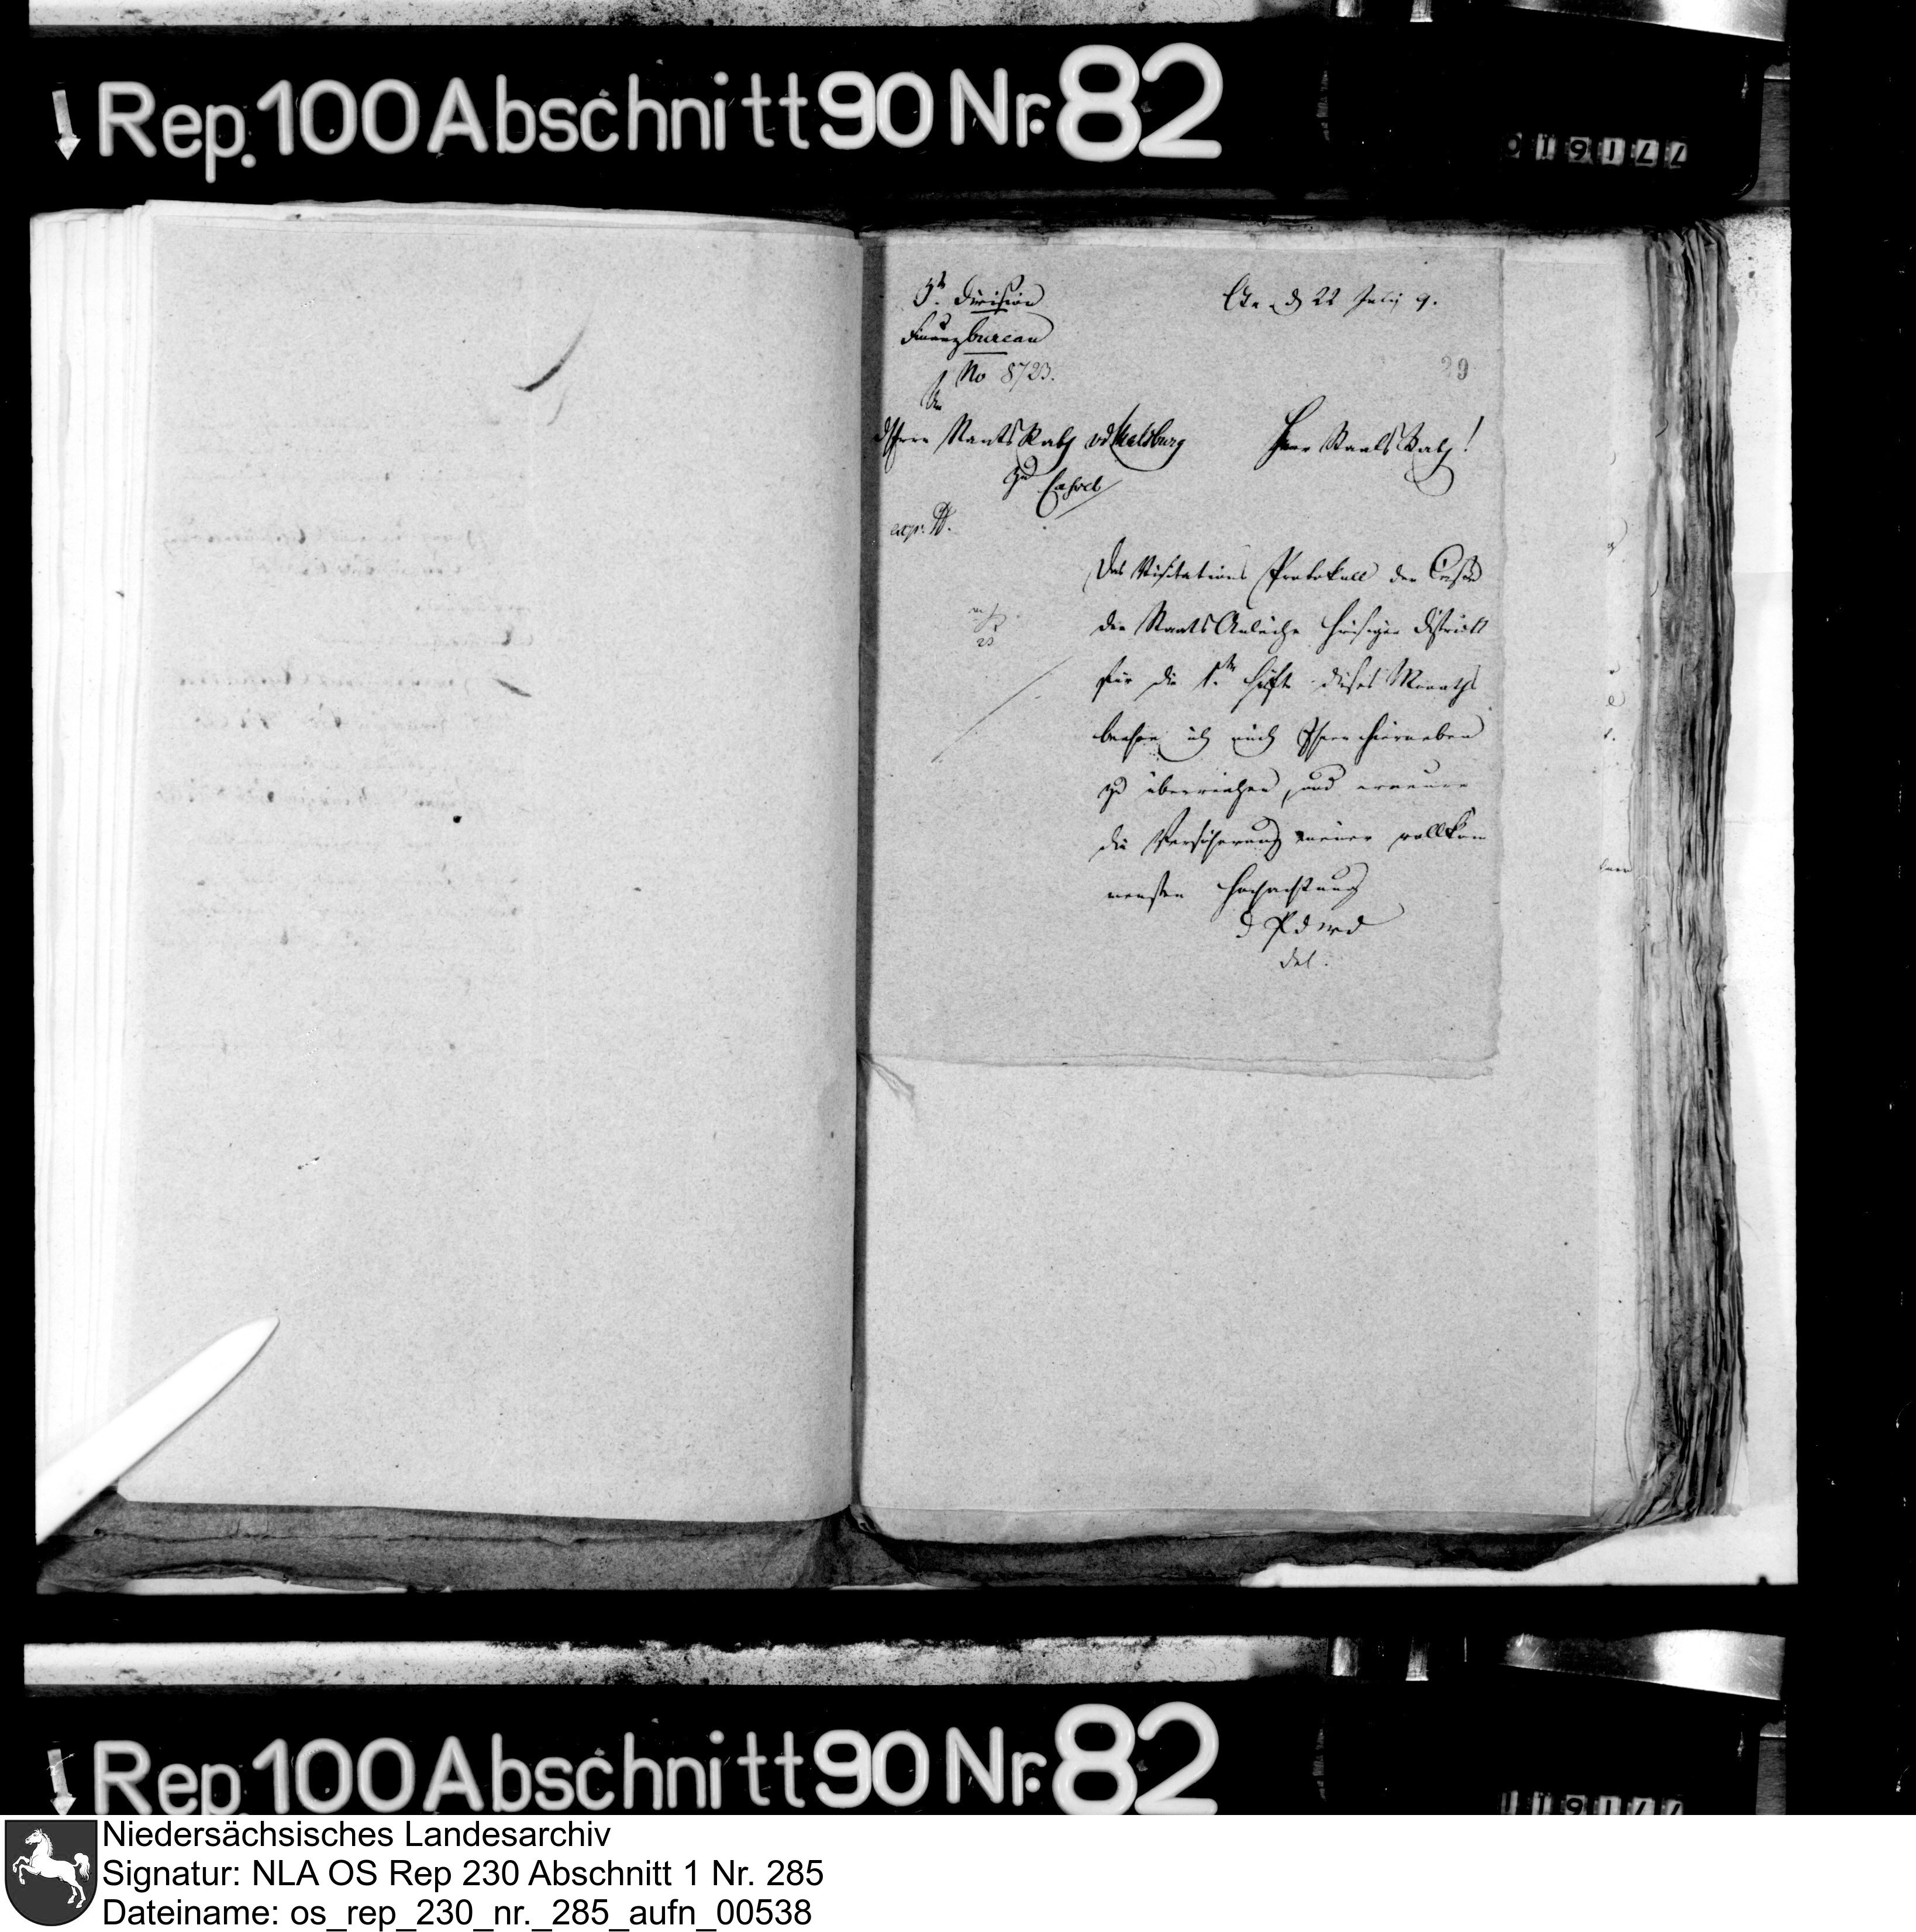 Rep. 100 Abschnitt 90 Nr. 82
3te Division
Finanzbureau
No 8723.
An
Herrn Staats Rath vdMalsburg
zu Cassel
exp.
den 22 July 9.
29
Herr Staats Rath!
Das Visitations Protokoll der Casse
der Staats Anleihe hiesigen Districts
für die 1te Hälfte dieses Monaths
beehre ich mich Ihnen hierneben
zu überreichen, und erneure
die Versicherung meiner vollkom
mensten Hochachtung
d P d W D
Del.
Rep. 100 Abschnitt 90 Nr. 82
Niedersächsisches Landesarchiv
Signatur: NLA OS Rep 230 Abschnitt 1 Nr. 285
Dateiname: os_rep_230_nr._285_aufn_00538